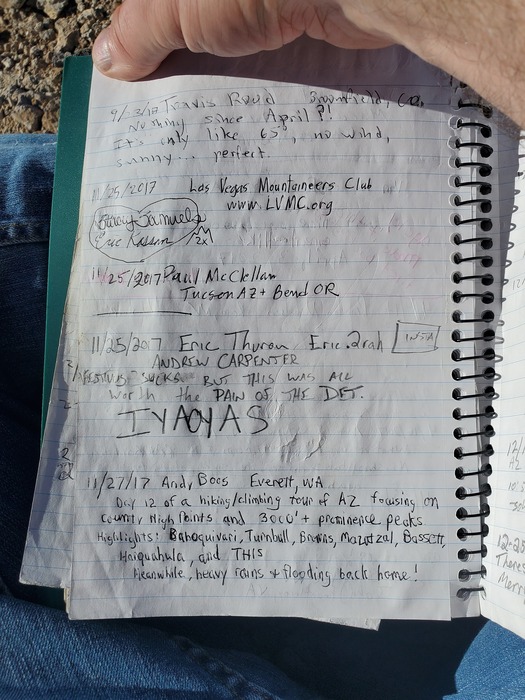 9/23/17 Travis Rood Broomfield, Co.
Nothing since April?!
It's only like 65°, no wind,
sunny... perfect.
11/25/2017 Las Vegas Mountaineers Club
www.LVMC.org
Samuels
Eric
2x
11/25/2017 Paul McClellan
Tucson AZ + Bend OR
11/25/2017 Eric Eric.2rah INSTA
ANDREW CARPENTER
SUCKS BUT THIS WAS ALL
Worth the PAIN OF THE DET.
IYAOYAS
11/27/17 Andy Boos Everett, WA
Day 12 of a hiking/climbing tour of AZ focusing on
County High Points and 3000'+ prominence peaks
Highlights: Baboquivari, Turnbull, Browns, Mazatzal, Bassett,
Harquahala, and THIS
Meanwhile, heavy rains + flooding back home!